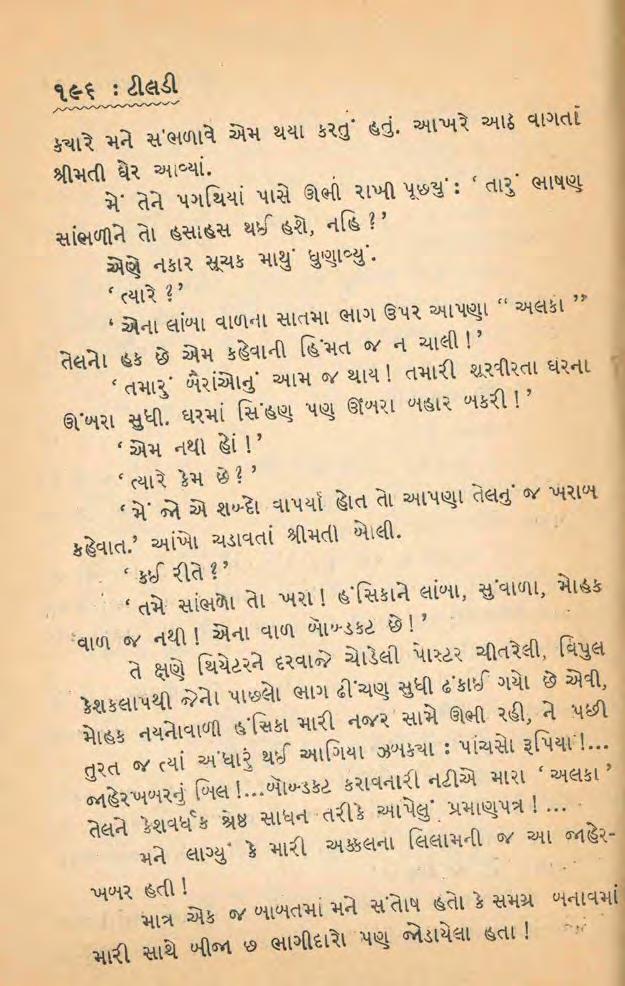 ૧૯૬ : ટીલડી
ક્યારે મને સંભળાવે એમ થયા કરતું હતું. આખરે આઠ વાગતાં
શ્રીમતી ઘેર આવ્યાં.
મેં તેને પગથિયાં પાસે ઊભી રાખી પૂછ્યું : ‘ તારું ભાષણ
સાંભળીને તો હસાહસ થઈ હશે, નહિ ?’
એણે નકાર સૂચક માથું ધુણાવ્યું.
‘ ત્યારે ?’
‘ એના લાંબા વાળના સાતમા ભાગ ઉપર આપણા “ અલકા ”
તેલનો હક છે એમ કહેવાની હિંમત જ ન ચાલી !’
‘ તમારું બૈરાંઓનું આમ જ થાય ! તમારી શૂરવીરતા ઘરના
ઊંબરા સુધી. ઘરમાં સિંહણ પણ ઊંબરા બહાર બકરી !’
‘ એમ નથી હોં !’
‘ ત્યારે કેમ છે ?’
‘ મેં જો એ શબ્દો વાપર્યા હોત તો આપણા તેલનું જ ખરાબ
કહેવાત.’ આંખો ચડાવતાં શ્રીમતી બોલી.
‘ કઈ રીતે ?’
‘ તમે સાંભળો તો ખરા ! હંસિકાને લાંબા, સુંવાળા, મોહક
વાળ જ નથી ! એના વાળ બૉબ્ડકટ છે !’
તે ક્ષણે થિયેટરને દરવાજે ચોડેલી પોસ્ટર ચીતરેલી, વિપુલ
કેશકલાપથી જેનો પાછલો ભાગ ઢીંચણ સુધી ઢંકાઈ ગયો છે એવી,
મોહક નયનોવાળી હંસિકા મારી નજર સામે ઊભી રહી, ને પછી
તુરત જ ત્યાં અંધારું થઈ આગિયા ઝબક્યા : પાંચસો રૂપિયા !...
જાહેરખબરનું બિલ !...બૉબ્ડકટ કરાવનારી નટીએ મારા ‘ અલકા ’
તેલને કેશવર્ધક શ્રેષ્ઠ સાધન તરીકે આપેલું પ્રમાણપત્ર !...
મને લાગ્યું કે મારી અક્કલના લિલામની જ આ જાહેર-
ખબર હતી !
માત્ર એક જ બાબતમાં મને સંતોષ હતો કે સમગ્ર બનાવમાં
મારી સાથે બીજા છ ભાગીદારો પણ જોડાયેલા હતા !